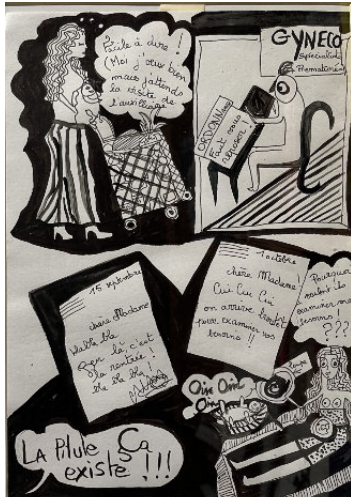 Facile à dire !
Moi j'veux bien
mais j'attends
la visite de
l'auxiliaire
GYNECO
Spécialiste
Prématurés
ORDONNance
Faut vous
reposer
15 septembre
chère Madame
blabla bla
Bon là c'est
la rentrée !
bla bla bla !
1 octobre
chère Madame !
Cui Cui Cui
on arrive bientôt
pour examiner vos
besoins !!
Pourquoi
veulent-ils
examiner mes
besoins !
???
Oin Oin
Oin
LA PILULE ÇA
existe !!!